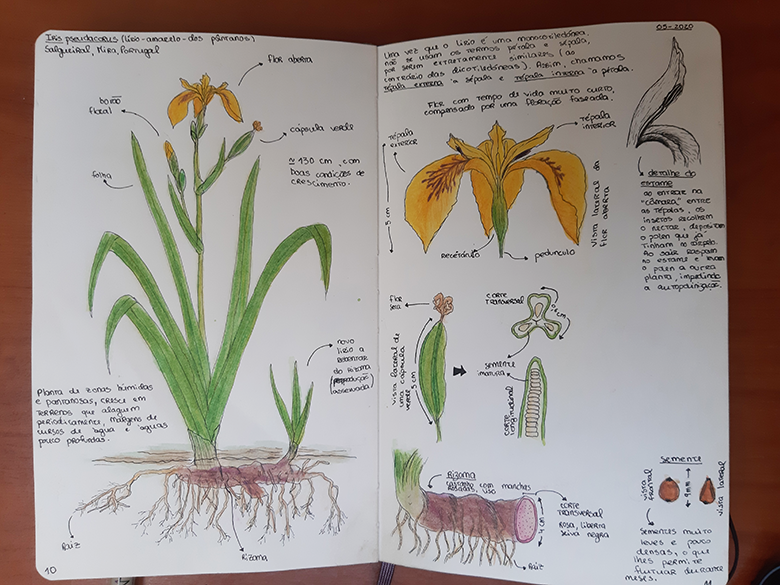 Iris pseudacorus (lírio-amarelo-dos pântanos)
Salgueiral, Mira, Portugal
Flor aberta
botão
floral
cápsula verde
folha
≃ 130 cm, com
boas condições de
crescimento.
novo
lírio a
rebentar
do rizoma
(reprodução
assexuada)
Planta de zonas húmidas
e pantanosas, cresce em
terrenos que alaguem
periodicamente, margens de
cursos de água e águas
pouco profundas.
Raiz
Rizoma
10
05-2020
Uma vez que o lírio é uma monocotiledónea
não se usam os termos pétala e sépala,
por serem extremamente similares (ao
contrário das dicotiledóneas). Assim, chamamos
tépala externa à sépala e tépala interna à pétala.
Flor com tempo de vida muito curto,
compensado por uma floração faseada.
tépala
exterior
tépala
interior
5 cm
Vista lateral da
flor aberta
Recetáculo
pedúnculo
detalhe do
estame
ao entrar na
"câmara" entre
as tépalas, os
insetos recolhem
o néctar, depositam
o pólen que já
tinham no corpo.
Ao sair raspam
no estame e levam
o pólen a outra
planta, impedindo
a autopolinização.
flor
seca
vista lateral de
uma cápsula
verde 5 cm
corte
transversal
semente
imatura
corte
longitudinal
Rizoma
rosadas, com manchas
corte
transversal
rosa, liberta
seiva negra
4 cm
Raiz
Semente
vista
frontal
vista lateral
Sementes muito
leves e pouco
densas, o que
lhes permite
flutuar durante
meses.